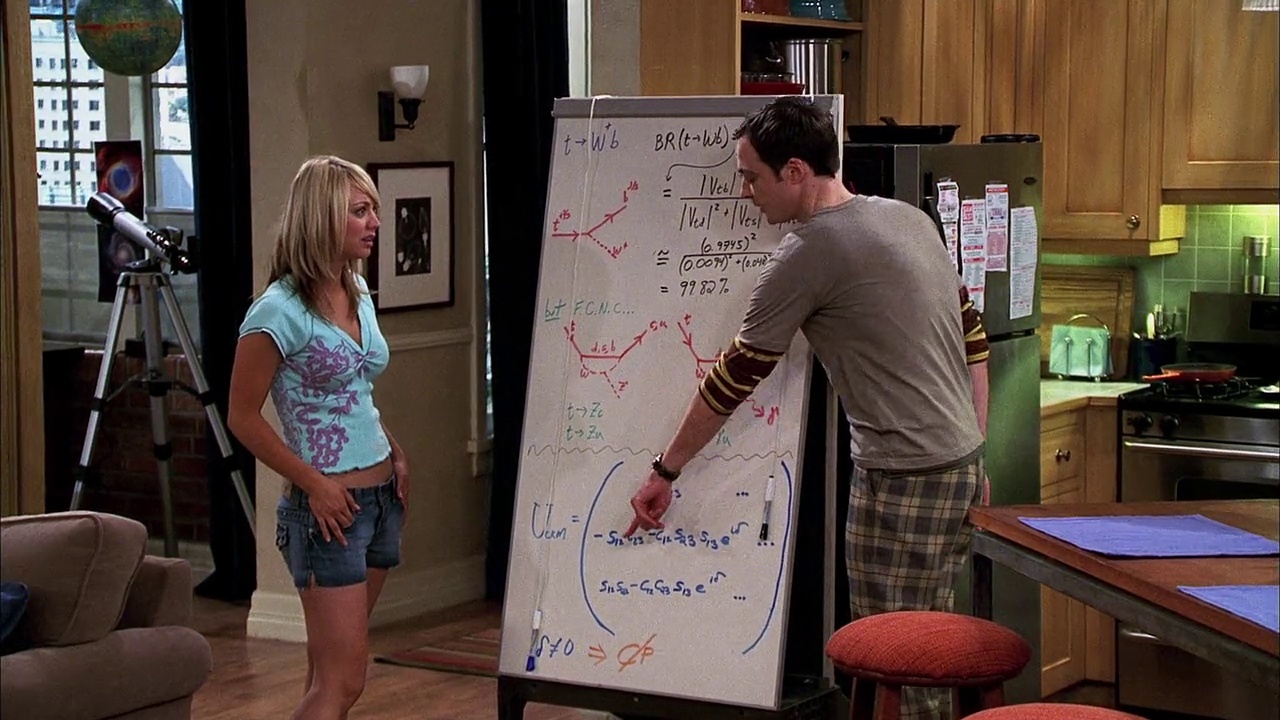 t → W⁺b
BR(t→Wb) =
= |Vtb|
|Vtd|² + |Vts|
t⁺²/³
b⁻¹/³
W⁺
≅ (0.9745)²
(0.0094)² + (0.040
= 99.82%
but F.C.N.C...
t
d,s,b
c,u
W
Z°
t
W
γ
t → Zc
t → Zu
γu
U_CKM =
...
-S₁₂C₂₃ - C₁₂S₂₃S₁₃e^iδ ...
S₁₂S₂₃ - C₁₂C₂₃S₁₃e^iδ ...
δ ≠ 0 ⇒ CP